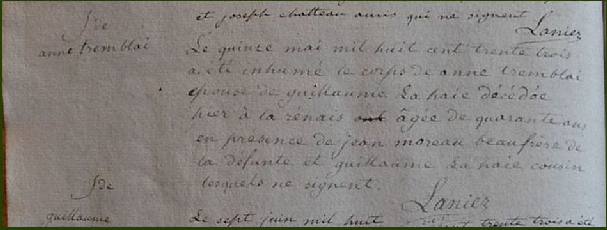 et joseph chatteau amis qui ne signent
Laniez
S de
anne tremblai
Le quinze mai mil huit cent trente trois
a été inhumé le corps de anne tremblai
epouse de guillaume La haie décédée
hier à la renais âgée de quarante ans
en presence de jean moreau beaufrère de
la defunte et guillaume La haie cousin
lesquels ne signent.
Laniez
S de
guillaume
Le sept juin mil huit cent trente trois a été